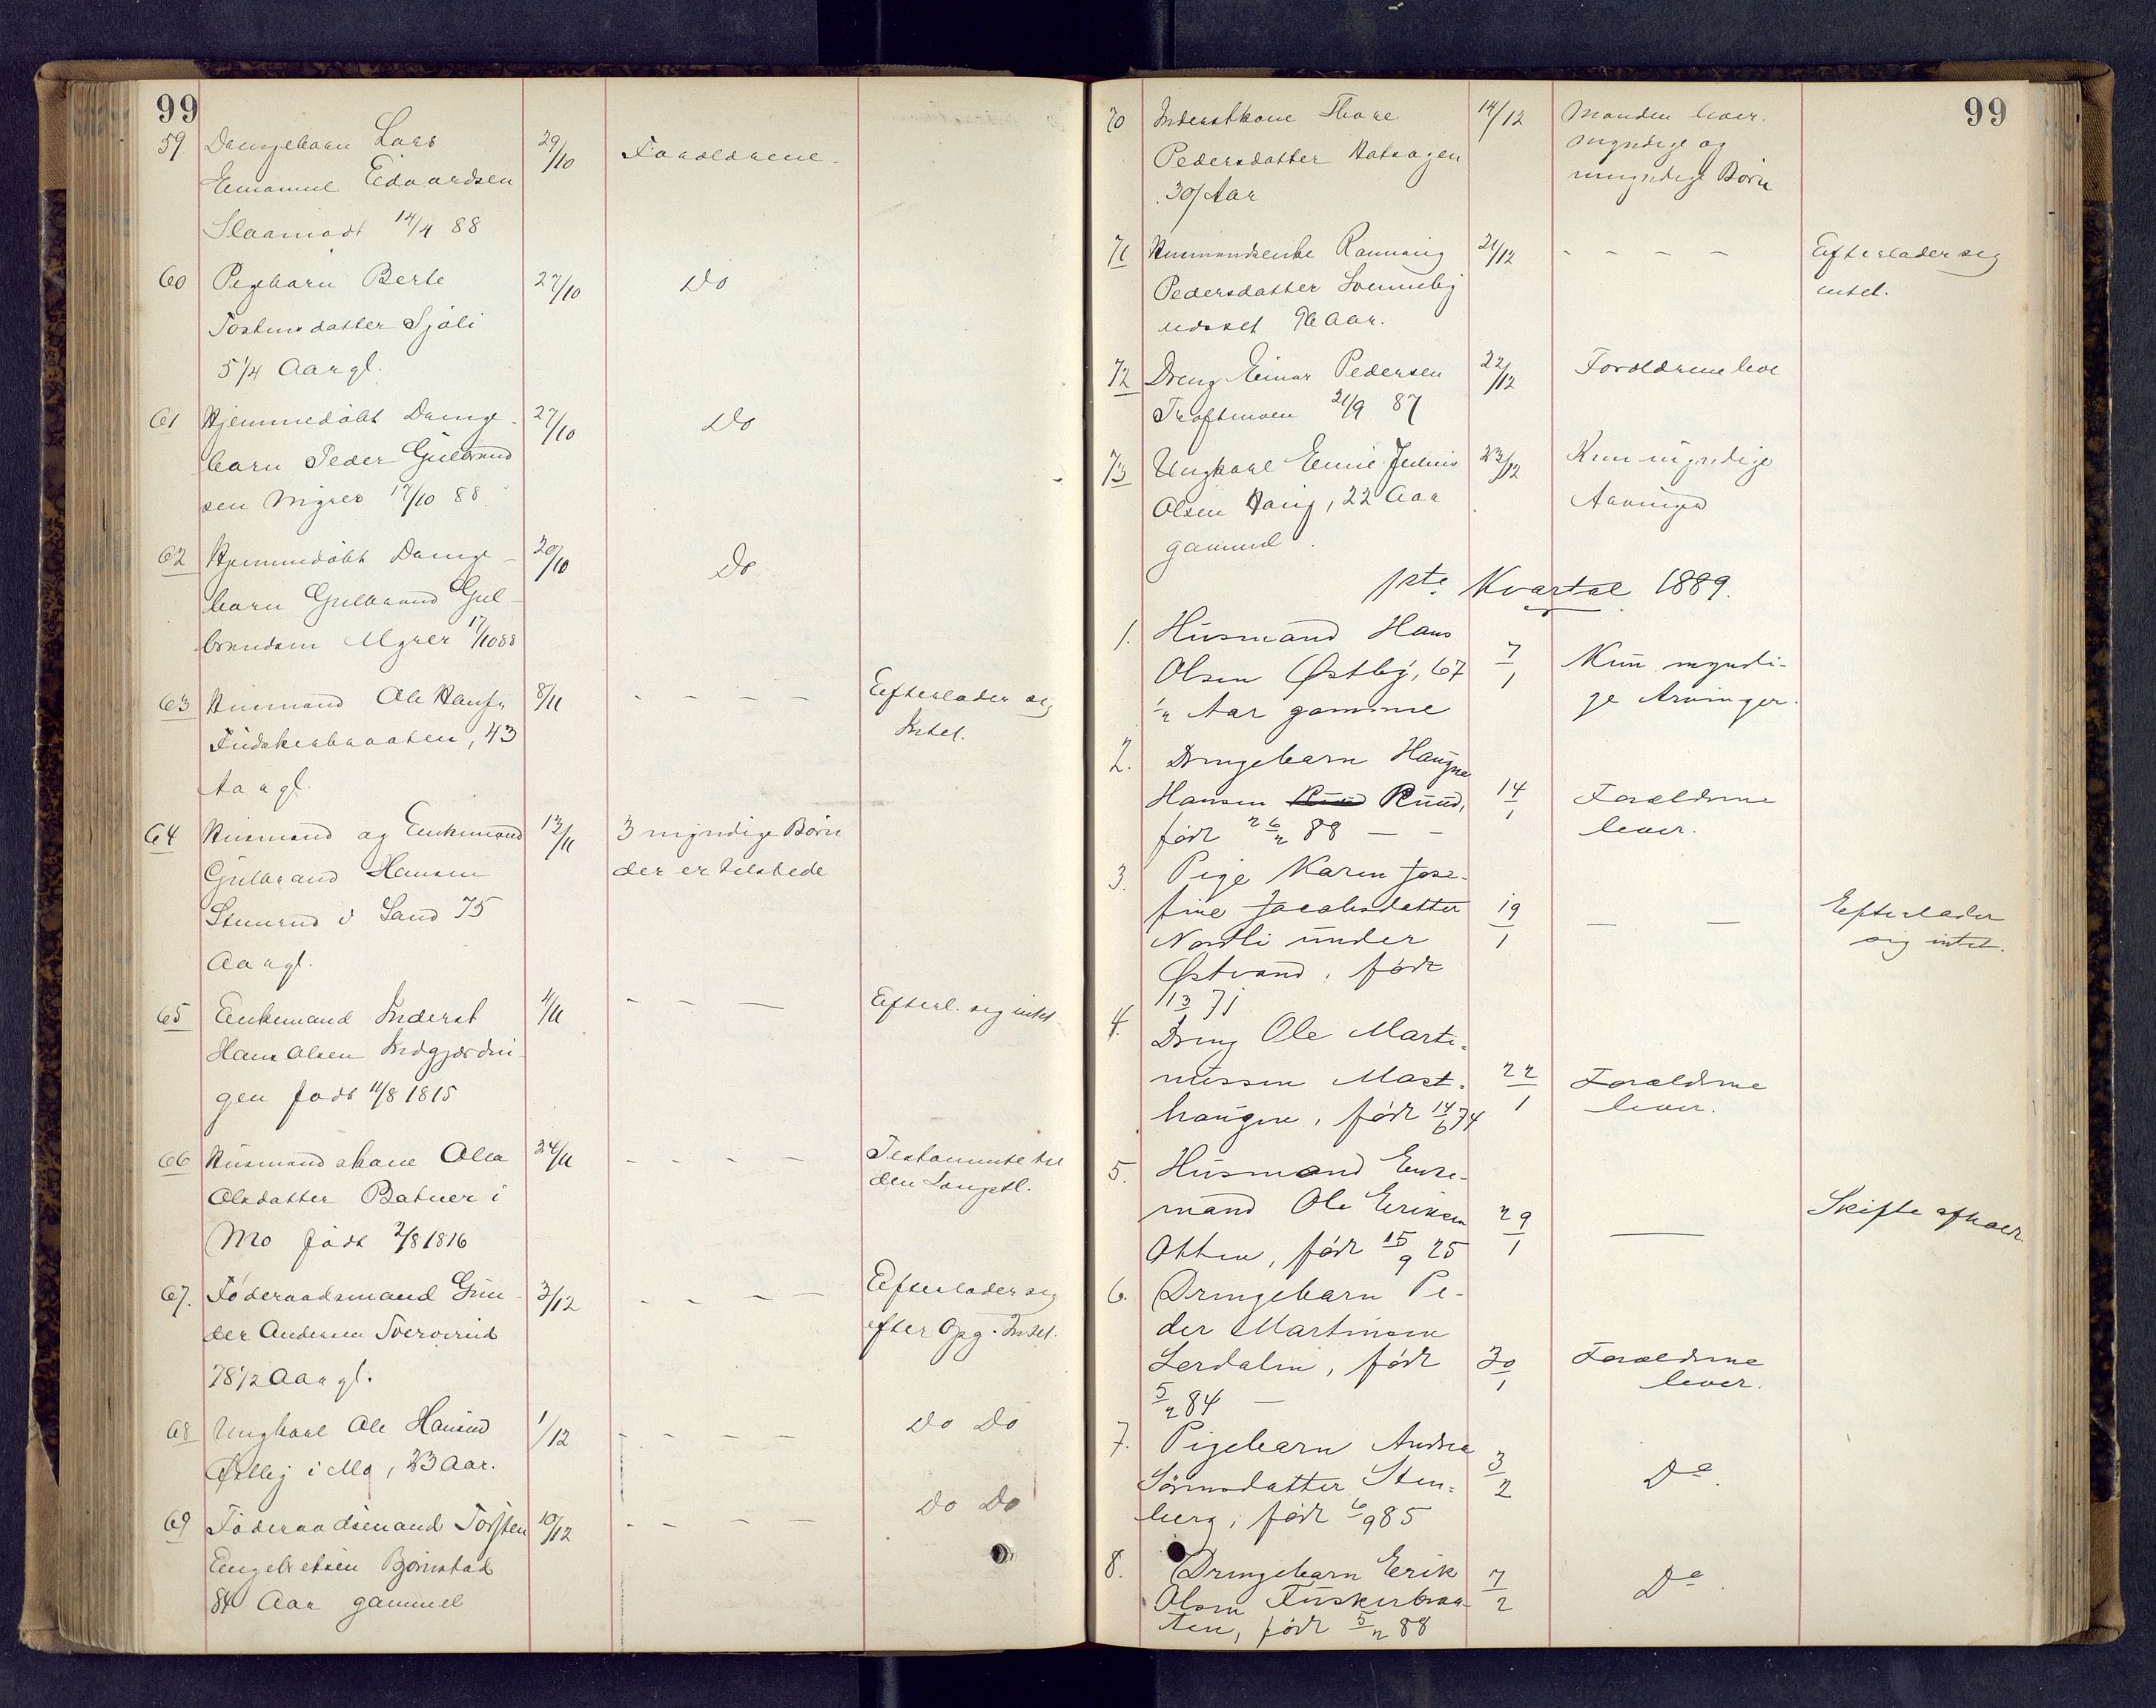 99
59 Drengebarn Lars 29/10 Forældrene.
Emanuel Edvardsen
Slaamodt 14/4 88
60 Pigebarn Berte 27/10 Do
Tostensdatter Sjøli
5 1/4 Aar gl.
61 Hjemmedøbt Drenge- 27/10 Do
barn Peder Gulbrand
sen Mgrer 17/10 88
62 Hjemmedøbt Drenge- 20/10 Do
barn Gulbrand Gul-
brandsen Mgrer 17/10 88
63 Husmand Ole Hansen 8/11 - - - - Efterlader sig
Fuskerbraaten, 43 Intet.
Aar gl.
64 Husmand og Enkemand 13/11 3 myndige Børn
Gulbrand Hansen der er tilstede
Stenrud i Sand 75
Aar gl.
65 Enkemand Inderst 4/11 - - - Efterl. sig intet
Hans Olsen
gen født 11/8 1815
66 Husmandskone Olea 24/11 - - - - Testamente til
Olsdatter Batner i den Længstl.
Mo født 2/8 1816
67. Føderaadsmand Gun- 3/12 - - - - Efterlader sig
der Andersen efter Opg. Intet.
78 1/2 Aar gl.
68 Ungkarl Ole Hansen 1/12 - - - - Do Do
Østby i Mo, 23 Aar.
69 Føderaadsmand Torsten 10/12 - - - - Do Do
Engebretsen Bjørnstad
84 Aar gammel
99
70 Inderstkone Thore 14/12 Manden lever.
Pedersdatter Hatsagen myndige og
30 Aar umyndige Børn
71 Husmandsenke Rønnaug 21/12 - - - - Efterlader sig
Pedersdatter Svenneby intet.
udsæt 76 Aar.
72 Dreng Einar Pedersen 22/12 Forældrene leve
Troftmoen 21/9 87
73 Ungkarl Emil Julius 23/12 Kun myndige
Olsen Haug, 22 Aar Arvinger
gammel.
1ste Kvartal 1889.
1. Husmand Hans
Olsen Østby, 67 7/1 Kun myndi-
1/2 Aar gamme ge Arvinger.
2. Drengebarn Haugne
Hansen Ruud Ruud, 14/1 Forældrene
født 26/2 88 - - lever.
3. Pige Karen Jose-
fine Jacobsdatter 19/1 - - Efterlader
Nordli under sig intet.
Østvand, født
11/3 71
4. Dreng Ole Marti-
nussen Mast- 22/1 Forældrene
haugen, født 14/6 74 lever.
5. Husmand Enke-
mand Ole Eriksen 29/1 - Skifte afholdt
Otten, født 15/9 25
6. Drengebarn Pe-
der Martinsen
Lerdalen, født 30/1 Forældrene
5/2 84 - lever.
7. Pigebarn Andrea 3/2 Do.
Sørensdatter Sten-
berg, født 6/9 85
8. Drengebarn Erik 7/2 Do.
Olsen Fuskerbraa-
ten, født 5/2 88